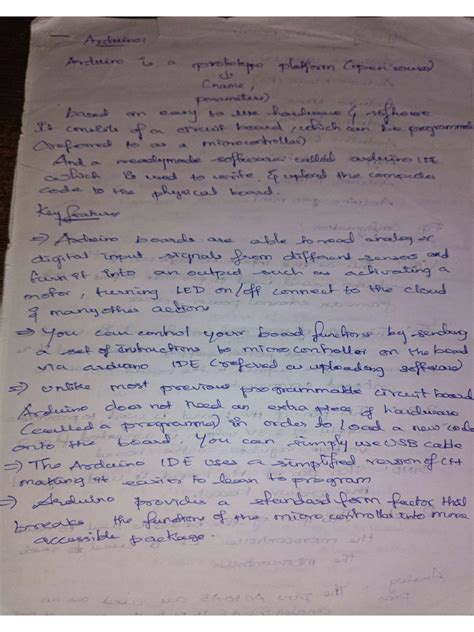 Arduino:
Arduino is a prototype platform (opensource)
(name,
parameters)
based on easy to use hardware & software
It consists of a circuit board, which can be programmed
(referred to as a microcontroller)
And a readymade software called arduino IDE
which is used to write & upload the computer
code to the physical board.
Key features
⇒ Arduino boards are able to read analog or
digital input signals from different sensors and
turn it into an output such as activating a
motor, turning LED on/off connect to the cloud
& many other action
⇒ You can control your board functions by sending
a set of instructions to microcontroller on the board
via arduino IDE (refered as uploading software)
⇒ Unlike most previous programmable circuit board
Arduino does not need an extra piece of hardware
(called a programme) in order to load a new code
onto the board. You can simply use USB cable
⇒ The Arduino IDE uses a simplified version of C++
making it easier to learn to program
⇒ Arduino provides a standard form factor that
breaks the function of the micro controller into more
accessible package.